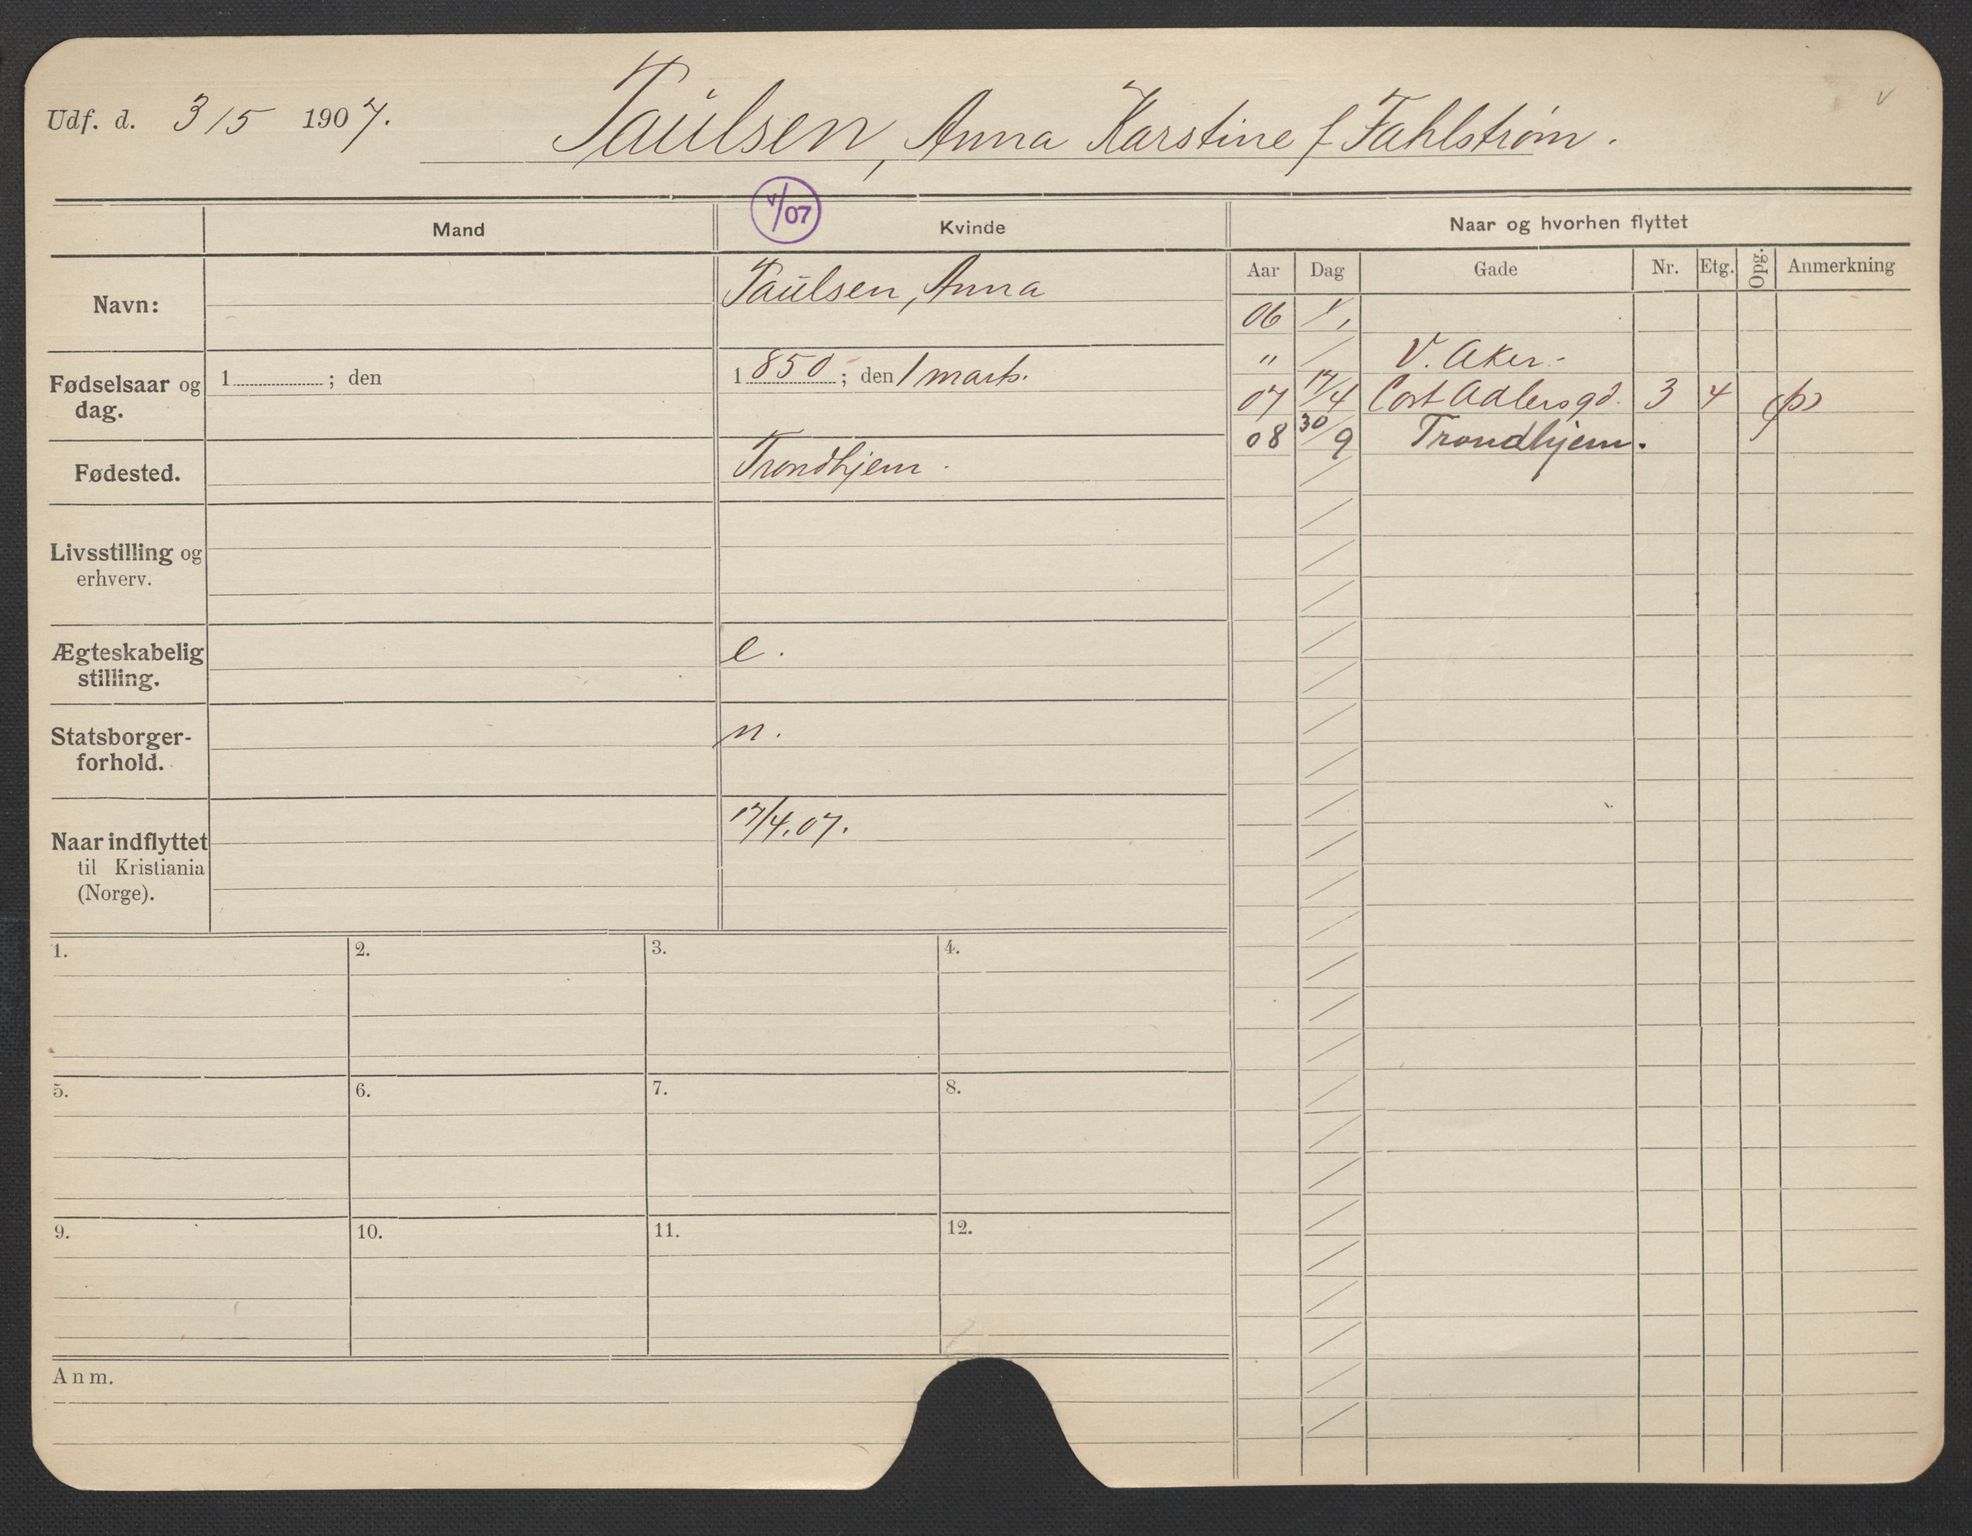 Udf. d. 3/5 1907. Paulsen, Anna Karstine f Fahlstrøm.
V/07
Mand Kvinde Naar og hvorhen flyttet
Aar Dag Gade Nr. Etg. Opg. Anmerkning
Navn: Paulsen, Anna
06 1/1
" V. Aker.
Fødselsaar og dag. 1 ; den 1850 ; den 1 marts.
07 17/4 Cort Adlersgd. 3 4 (p)
08 30/9 Trondhjem.
Fødested. Trondhjem.
Livsstilling og
erhverv.
Ægteskabelig
stilling. e.
Statsborger-
forhold. n.
Naar indflyttet
til Kristiania
(Norge). 17/4.07.
1. 2. 3. 4.
5. 6. 7. 8.
9. 10. 11. 12.
Anm.